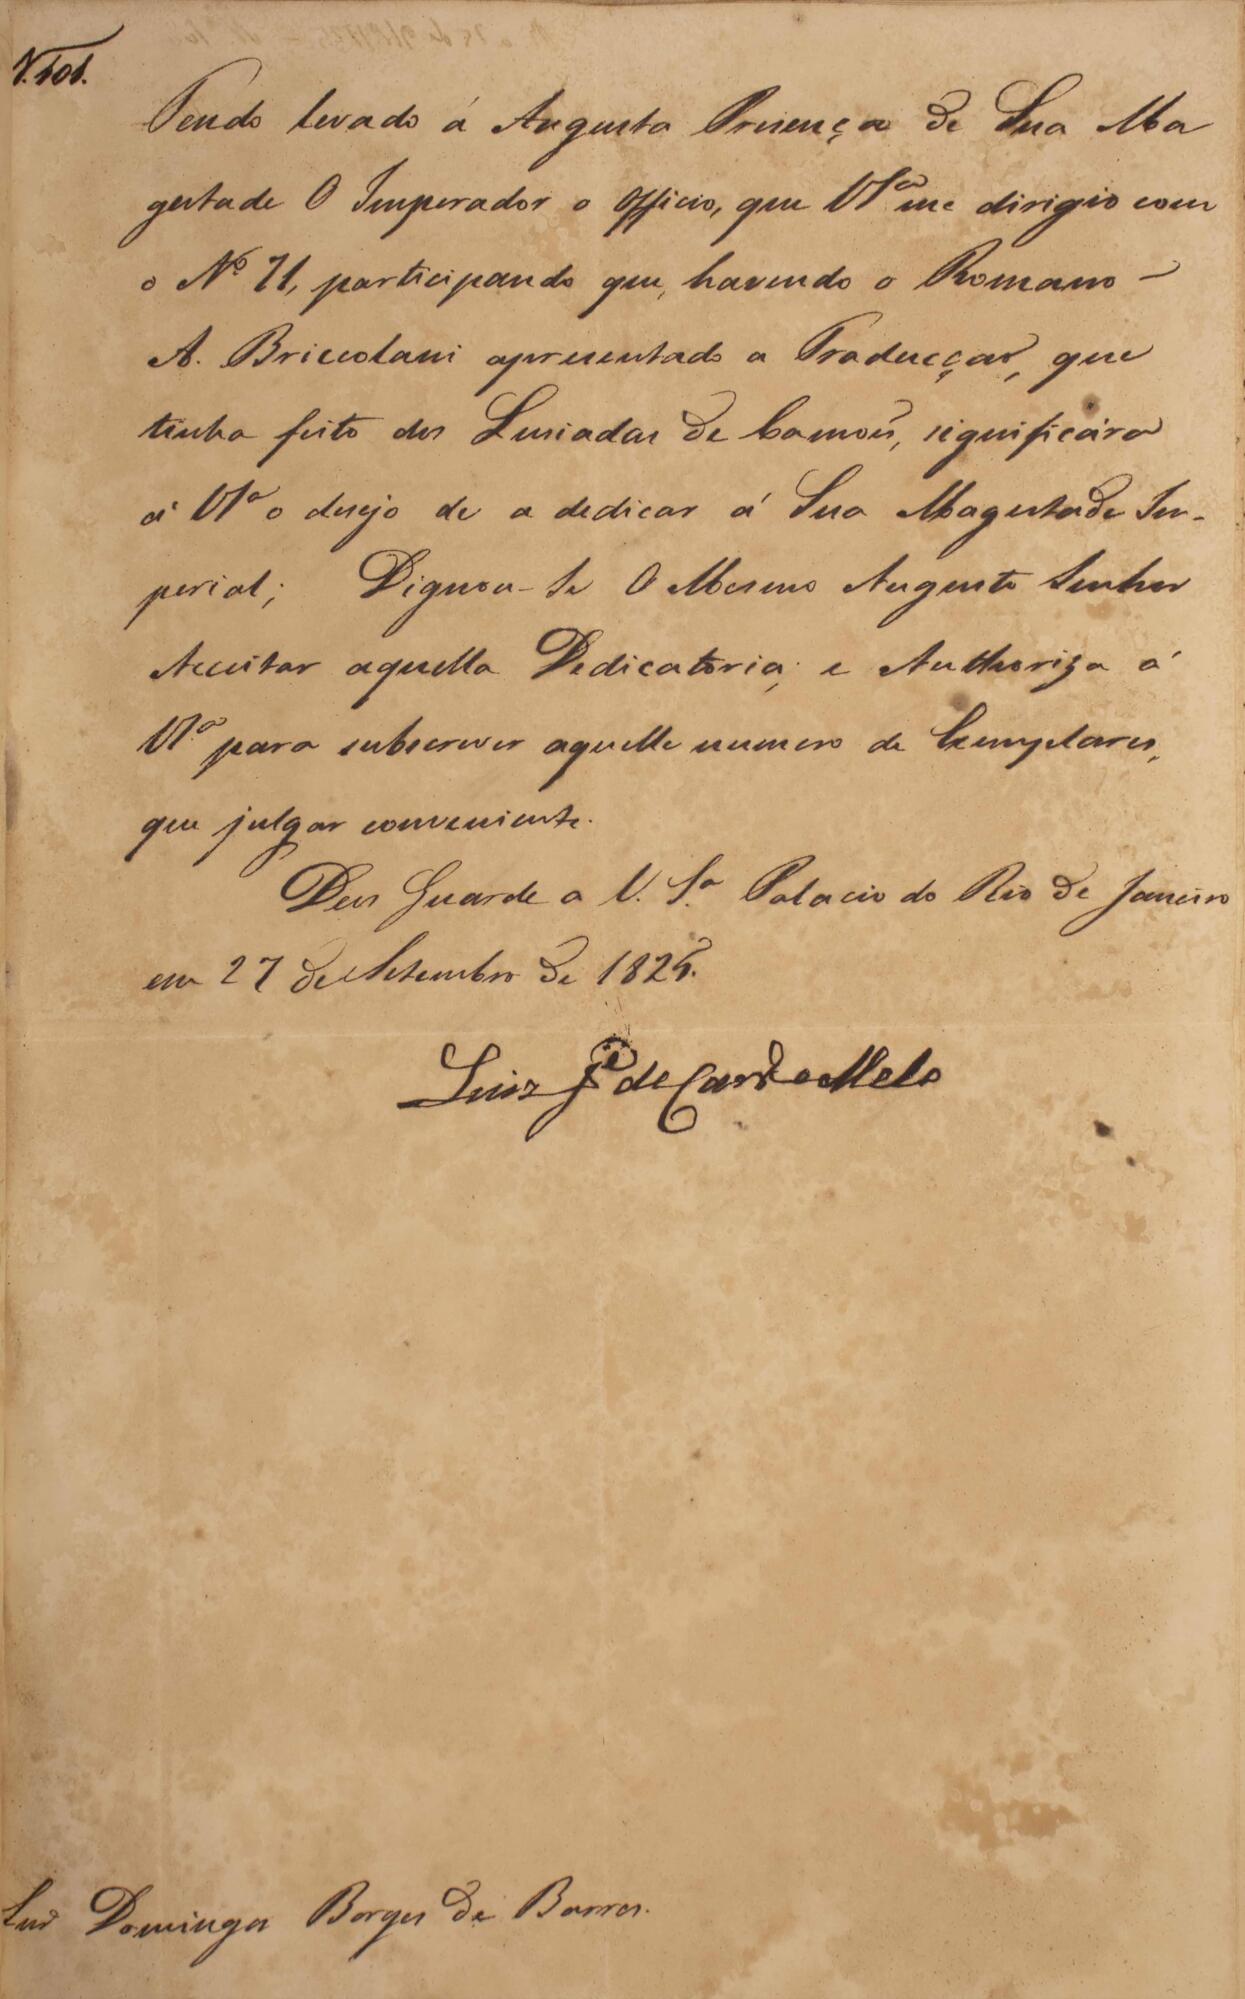 N. 101.
Tendo levado á Augusta Presença de Sua Ma
gestade O Imperador o officio, que VSª me dirigio com
o Nº 71, participando que, havendo o Romano –
A. Briccolani apresentado a Traducção, que
tinha feito dos Lusiadas de Camoẽs, significára
á VSª o desejo de a dedicar á Sua Magestade Im-
perial; Dignou-Se O Mesmo Augusto Senhor
Acceitar aquella Dedicatoria, e Authoriza á
VSª para subscrever aquelle numero de Exemplares,
que julgar conveniente.
Deus Guarde a V. Sª Palacio do Rio de Janeiro
em 27 de Setembro de 1825.
Luiz Jé de Carvº e Mello
Snr Domingos Borges de Barros.